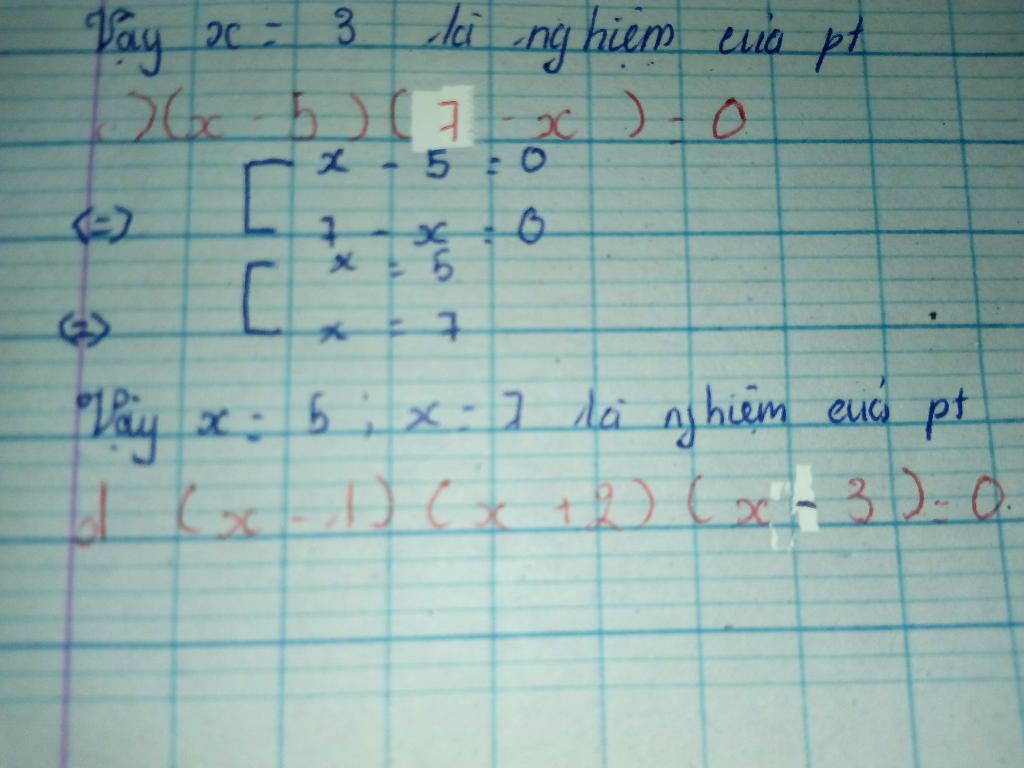 Vậy x = 3 là nghiệm của pt
)(x - 5)(7 - x) = 0
x - 5 = 0
<=>
7 - x = 0
x = 5
<=>
x = 7
Vậy x = 5 ; x = 7 là nghiệm của pt
d (x - 1)(x + 2)(x - 3) = 0.